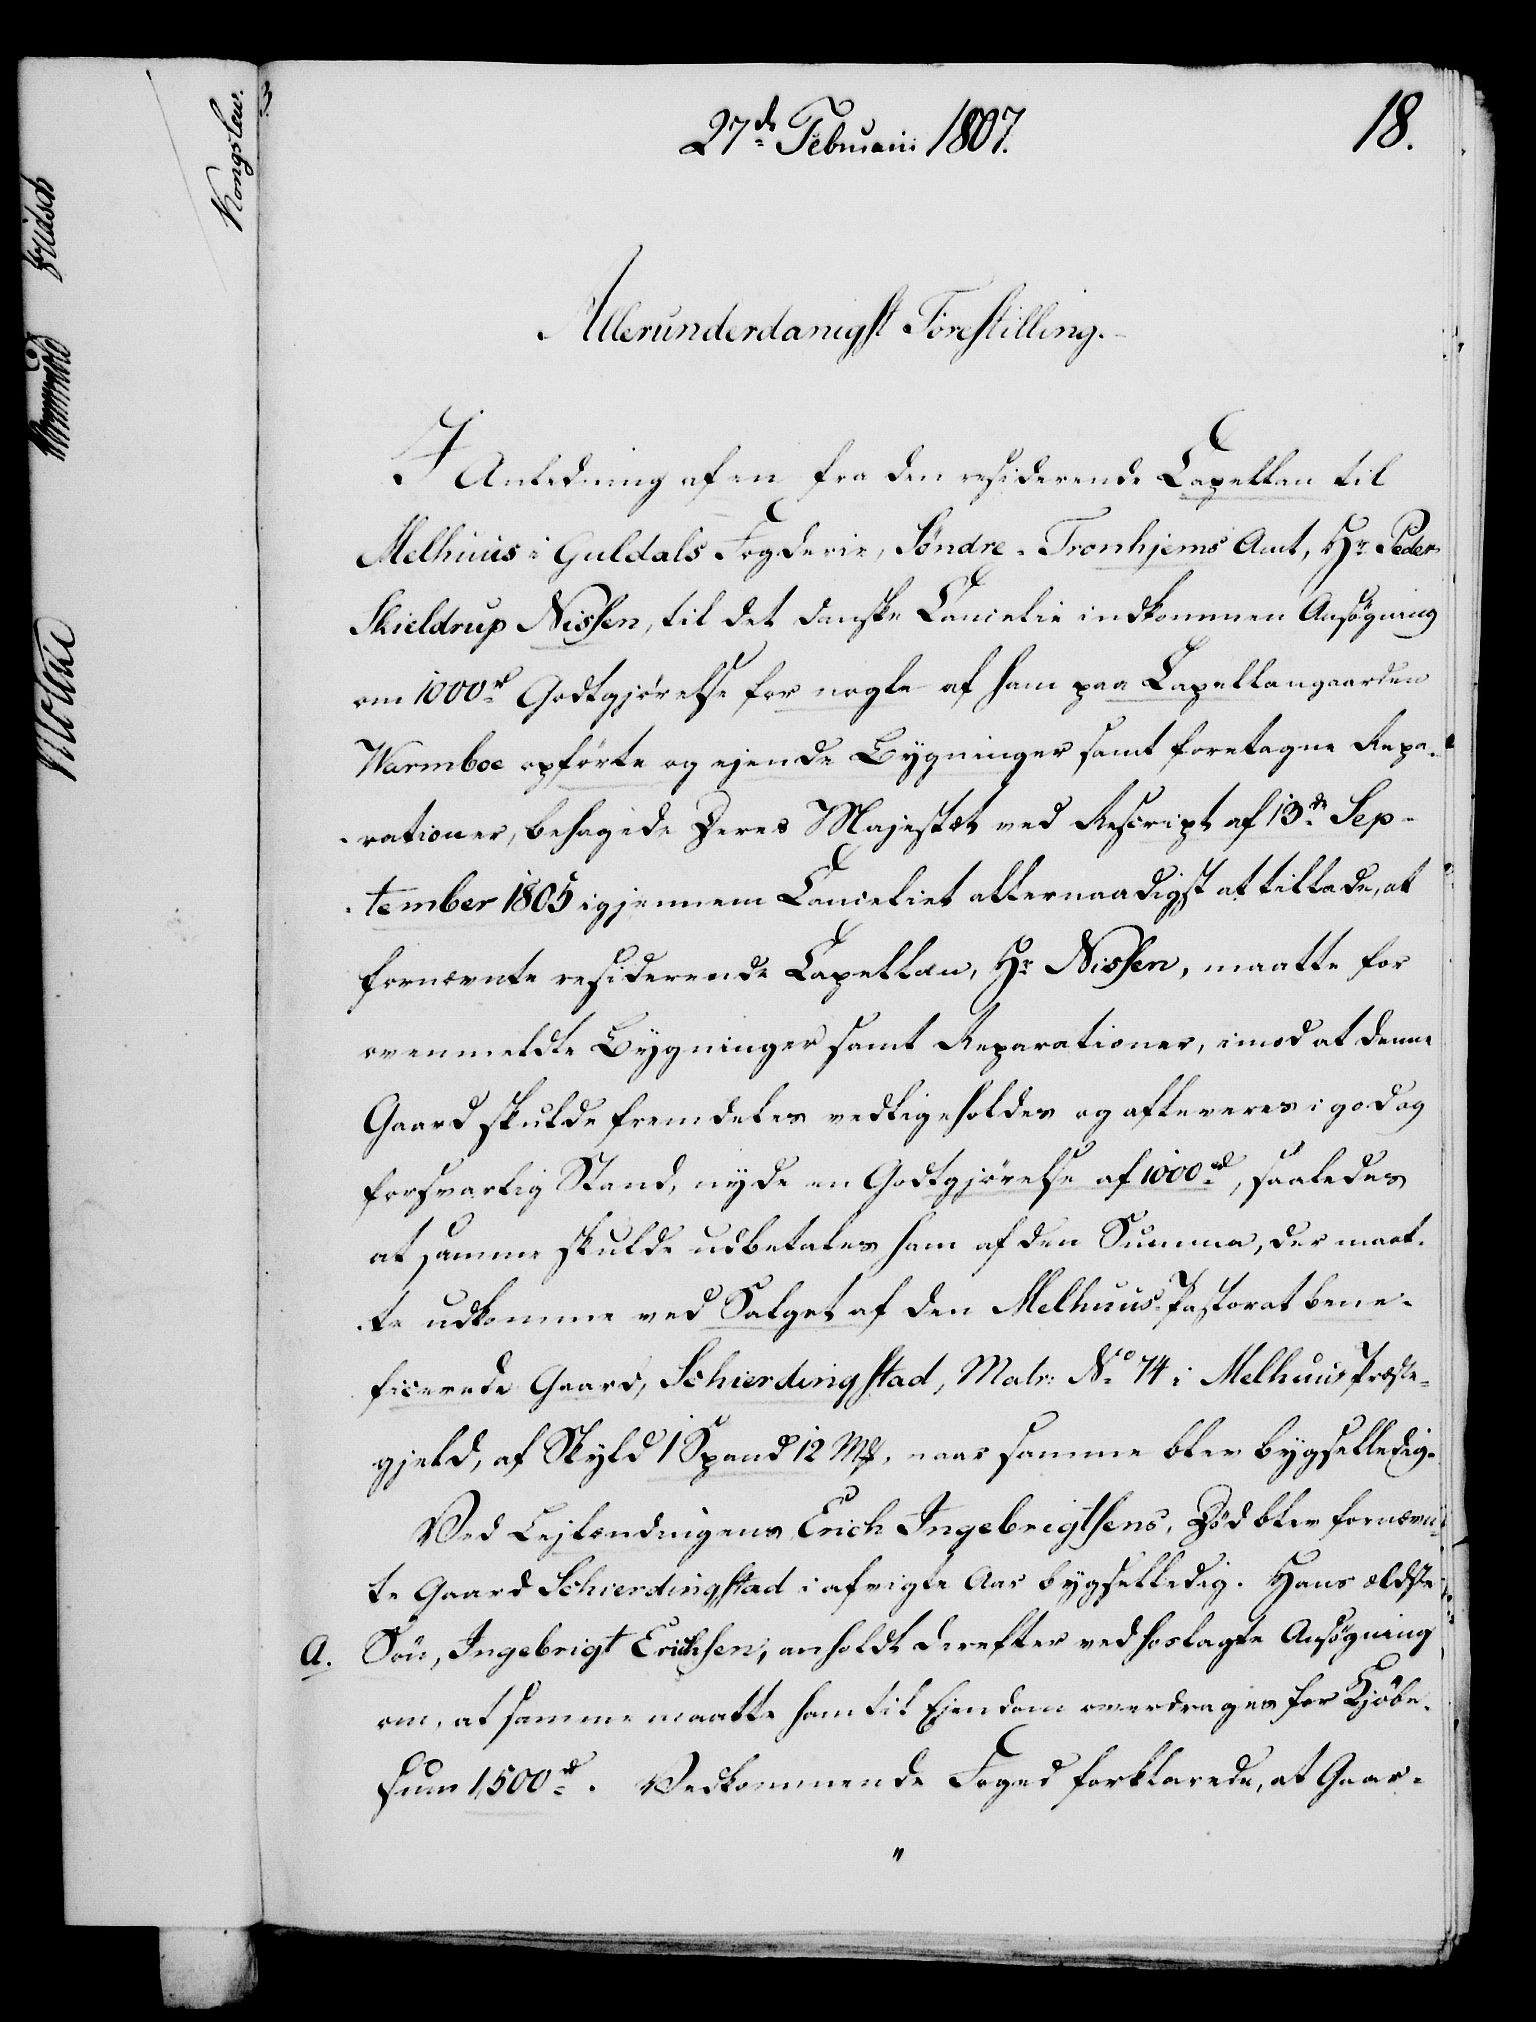 27de Februarii 1807.
18.
Allerunderdanigst Forestilling.
I Anledning af en fra den residerende Capellan til
Melhuus i Guldals Fogderie, Søndre-Tronhjems Amt, Hr Peder
Skieldrup Nissen, til det danske Cancelie indkommen Ansøgning
om 1000rd Godtgjørelse for nogle af ham paa Capellangaarden
Warmboe opførte og ejende Bygninger samt foretagne Repa-
rationer, behagede Deres Majestæt ved Rescript af 13de Sep-
tember 1805 igjennem Canceliet allernaadigst at tillade, at
fornævnte residerende Capellan, Hr Nissen, maatte for
ovenmeldte Bygninger samt Reparationer, imod at denne
Gaard skulde fremdeles vedligeholdes og afleveres i god og
forsvarlig Stand, nyde en Godtgjørelse af 1000rd, saaledes
at samme skulde udbetales ham af den Summa, der maat-
te udkomme ved Salget af den Melhuus Pastorat bene-
ficerede Gaard, Schierdingstad, Matr: No 74 i Melhuus Præste-
gjeld, af Skyld 1 Spand 12 Mk, naar samme blev bygselledig.
Ved Lejlændingens Erich Ingebrigtsens, Død blev fornævn-
te Gaard Schierdingstad i afvigte Aar bygselledig. Hans ældste
A. Søn, Ingebrigt Erichsen, anholdt derefter ved hoslagte Ansøgning
om, at samme maatte ham til Ejendom overdrages for Kjøbe-
sum 1,500rd. Vedkommende Foged forklarede, at Gaar-
"
Kongslew.
Moltke